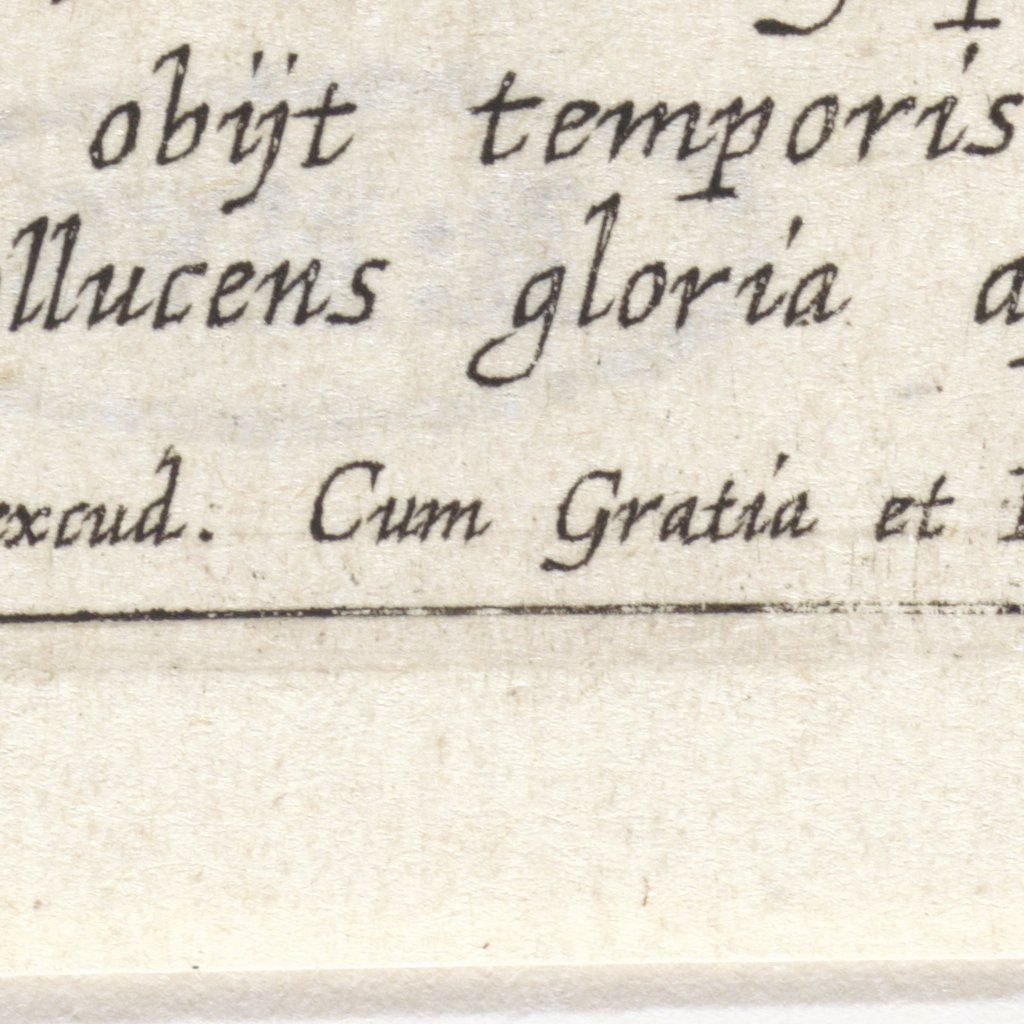 obijt temporis
llucens gloria
excud. Cum Gratia et